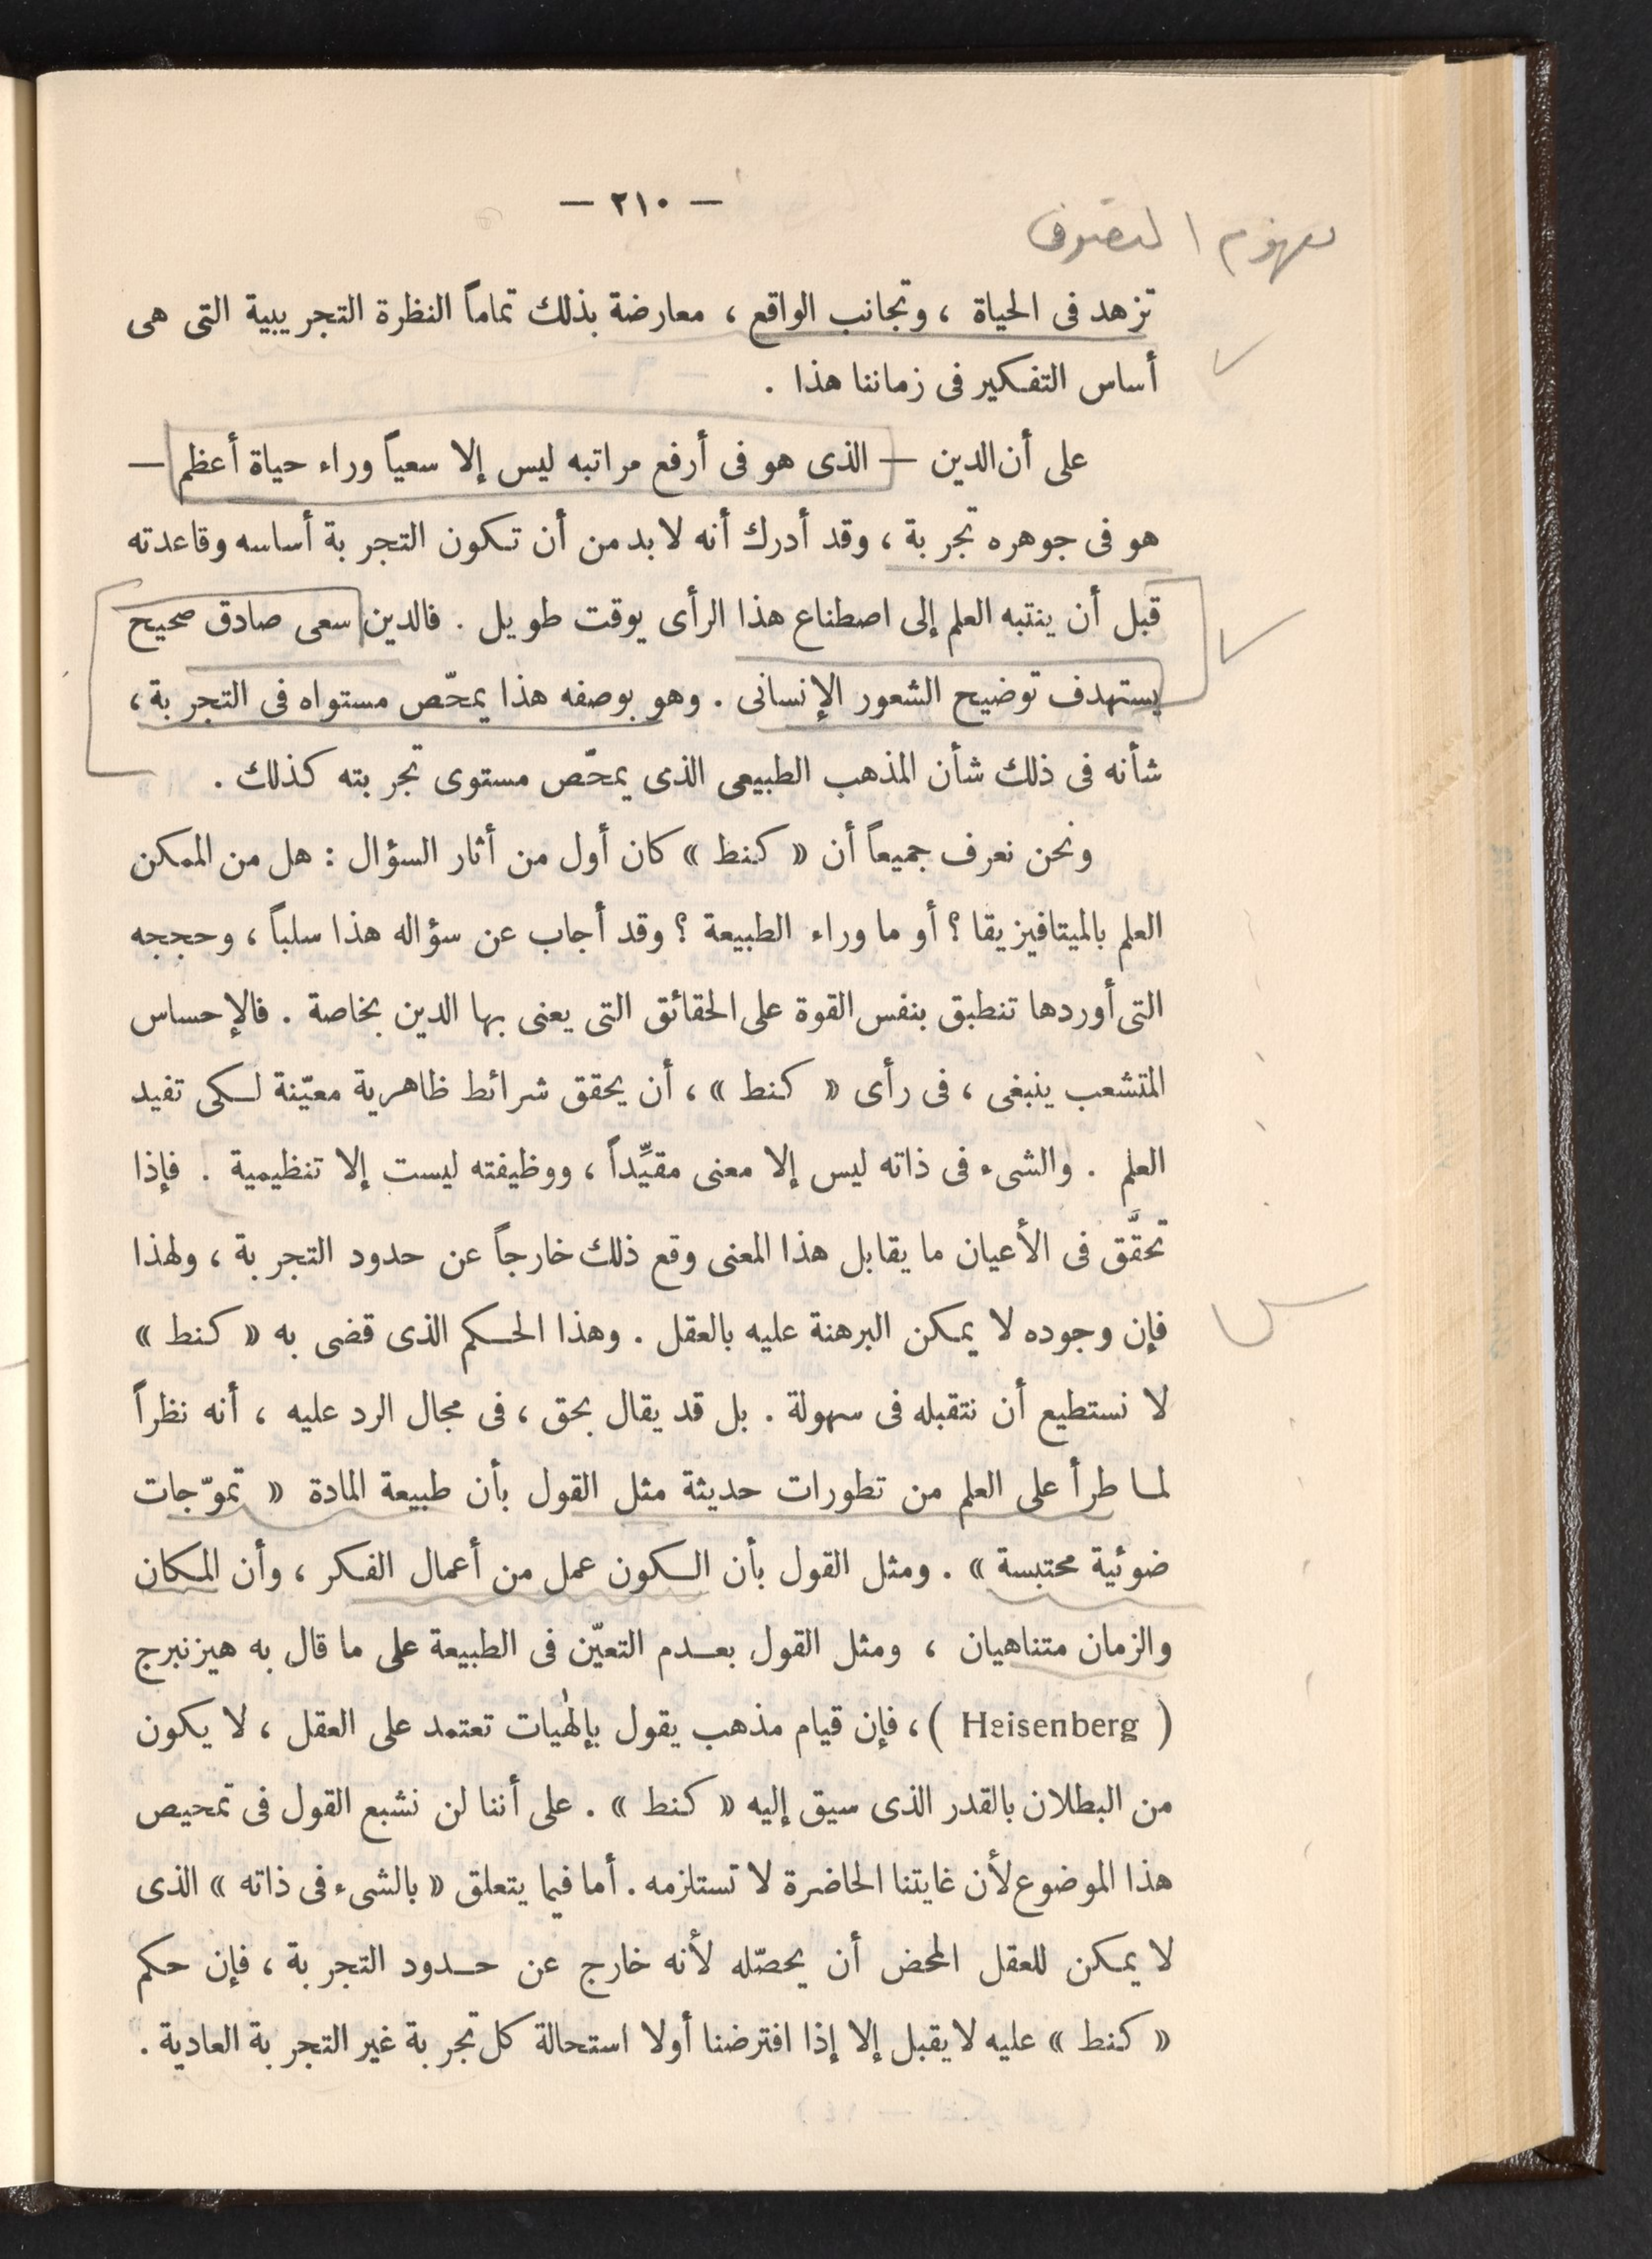 — ٢١٠ —
مفهوم التصوف
تزهد فى الحياة ، وتجانب الواقع ، معارضة بذلك تماماً النظرة التجريبية التى هى
أساس التفكير فى زماننا هذا .
على أن الدين — الذى هو فى أرفع مراتبه ليس إلا سعياً وراء حياة أعظم —
هو فى جوهره تجربة ، وقد أدرك أنه لا بد من أن تكون التجربة أساسه وقاعدته
قبل أن ينتبه العلم إلى اصطناع هذا الرأى بوقت طويل . فالدين سعى صادق صحيح
يستهدف توضيح الشعور الإنسانى . وهو بوصفه هذا يمحّص مستواه فى التجربة ،
شأنه فى ذلك شأن المذهب الطبيعى الذى يمحّص مستوى تجربته كذلك .
ونحن نعرف جميعاً أن « كنط » كان أول من أثار السؤال : هل من الممكن
العلم بالميتافيزيقا ؟ أو ما وراء الطبيعة ؟ وقد أجاب عن سؤاله هذا سلباً ، وحججه
التى أوردها تنطبق بنفس القوة على الحقائق التى يعنى بها الدين بخاصة . فالإحساس
المتشعب ينبغى ، فى رأى « كنط » ، أن يحقق شرائط ظاهرية معيّنة لكى تفيد
العلم . والشىء فى ذاته ليس إلا معنى مقيِّداً ، ووظيفته ليست إلا تنظيمية . فإذا
تحقَّق فى الأعيان ما يقابل هذا المعنى وقع ذلك خارجاً عن حدود التجربة ، ولهذا
فإن وجوده لا يمكن البرهنة عليه بالعقل . وهذا الحكم الذى قضى به « كنط »
لا نستطيع أن نتقبله فى سهولة . بل قد يقال بحق ، فى مجال الرد عليه ، أنه نظراً
لما طرأ على العلم من تطورات حديثة مثل القول بأن طبيعة المادة « تموّجات
ضوئية محتبسة » . ومثل القول بأن الكون عمل من أعمال الفكر ، وأن المكان
والزمان متناهيان ، ومثل القول بعدم التعيّن فى الطبيعة على ما قال به هيزنبرج
( Heisenberg ) ، فإن قيام مذهب يقول بإلهٰيات تعتمد على العقل ، لا يكون
من البطلان بالقدر الذى سيق إليه « كنط » . على أننا لن نشبع القول فى تمحيص
هذا الموضوع لأن غايتنا الحاضرة لا تستلزمه . أما فيما يتعلق « بالشىء فى ذاته » الذى
لا يمكن للعقل المحض أن يحصّله لأنه خارج عن حدود التجربة ، فإن حكم
« كنط » عليه لا يقبل إلا إذا افترضنا أولا استحالة كل تجربة غير التجربة العادية .